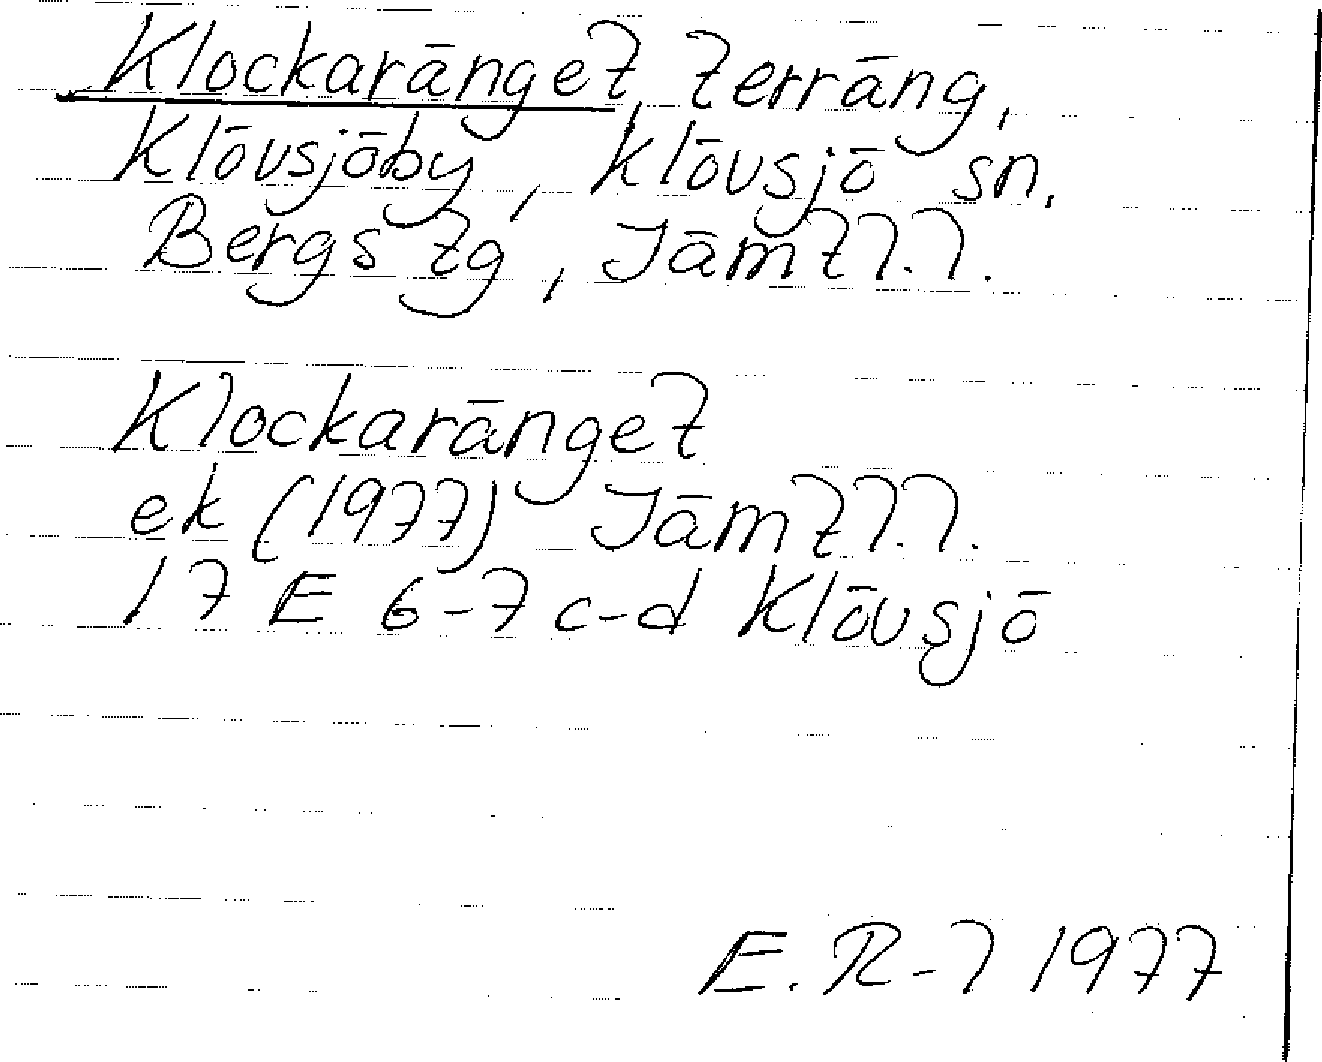 Klockaränget, terräng,
Klövsjöby, Klövsjö sn,
Bergs tg, Jämtl.l.
Klockaränget
ek (1977) Jämtl.l.
17 E 6-7 c-d Klövsjö
E. R-l 1977